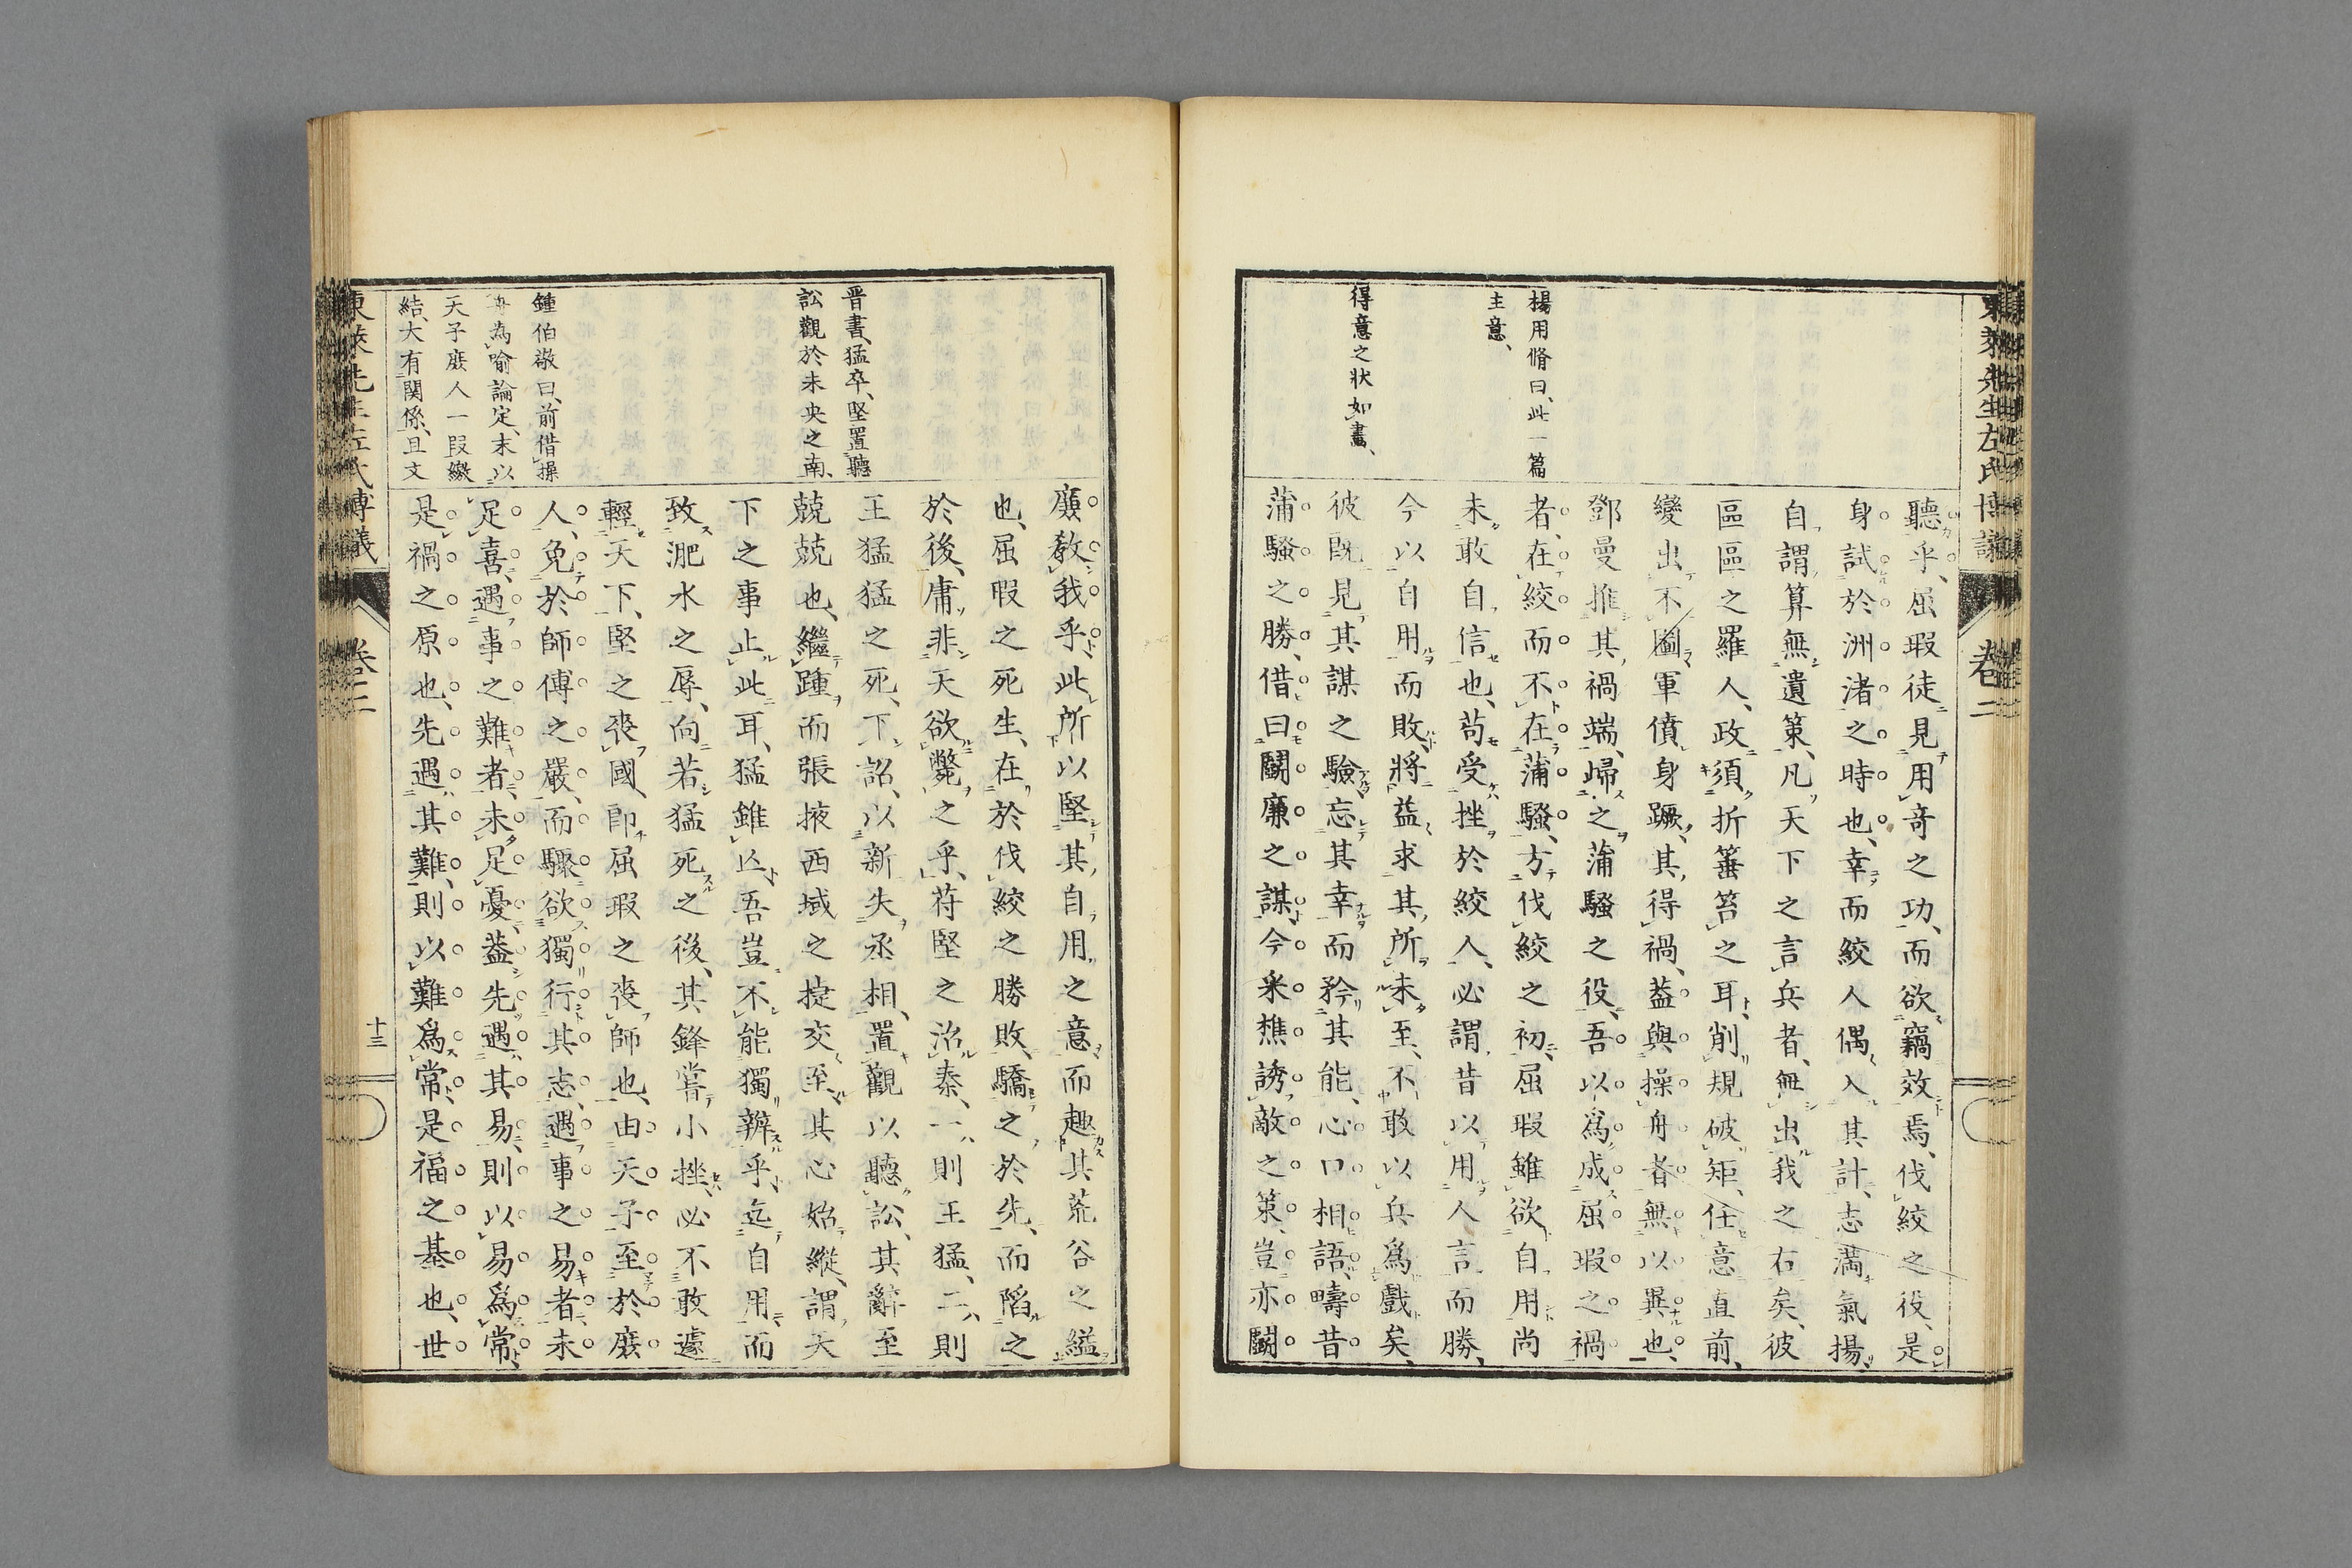 東萊先生左氏博議
卷二
楊用脩曰、此一篇
主意、
得意之狀如畫、
聽乎、屈瑕徒見用奇之功、而欲竊效焉、伐絞之役、是
身試於洲渚之時也、幸而絞人偶入其計、志滿氣揚、
自謂算無遺策、凡天下之言兵者、無出我之右矣、彼
區區之羅人、政須折箠笞之耳、削規破矩、任意直前、
變出不圖、軍僨身蹶、其得禍、蓋與操舟者無以異也、
鄧曼推其禍端、歸之蒲騷之役、吾以爲成屈瑕之禍
者、在絞而不在蒲騷、方伐絞之初、屈瑕雖欲自用尚
未敢自信也、苟受挫於絞人、必謂昔以用人言而勝、
今以自用而敗、將益求其所未至、不敢以兵爲戲矣、
彼既見其謀之驗、忘其幸而矜其能、心口相語、疇昔
蒲騷之勝、借曰鬬廉之謀、今采樵誘敵之策、豈亦鬬
晉書、猛卒、堅置聽
訟觀於未央之南、
鍾伯敬曰、前借操
舟為喻論定、末以
天子庶人一段繳
結、大有関係、且文
廉教我乎、此所以堅其自用之意、而趣其荒谷之縊
也、屈瑕之死生、在於伐絞之勝敗、驕之於先、而陷之
於後、庸非天欲斃之乎、苻堅之治秦、一則王猛、二則
王猛猛之死、下詔、以新失丞相、置觀以聽訟、其辭至
兢兢也、繼踵而張掖西域之捷交至、其心始縱、謂天
下之事止此耳、猛雖亾、吾豈不能獨辨乎、迄自用而
致淝水之辱、向若猛死之後、其鋒嘗小挫、必不敢遽
輕天下、堅之喪國、卽屈瑕之喪師也、由天子至於庶
人、免於師傅之嚴、而驟欲獨行其志、遇事之易者、未
足喜、遇事之難者、未足憂、蓋先遇其易、則以易爲常、
是禍之原也、先遇其難、則以難爲常、是福之基也、世
東萊先生左氏博議
卷二
十三